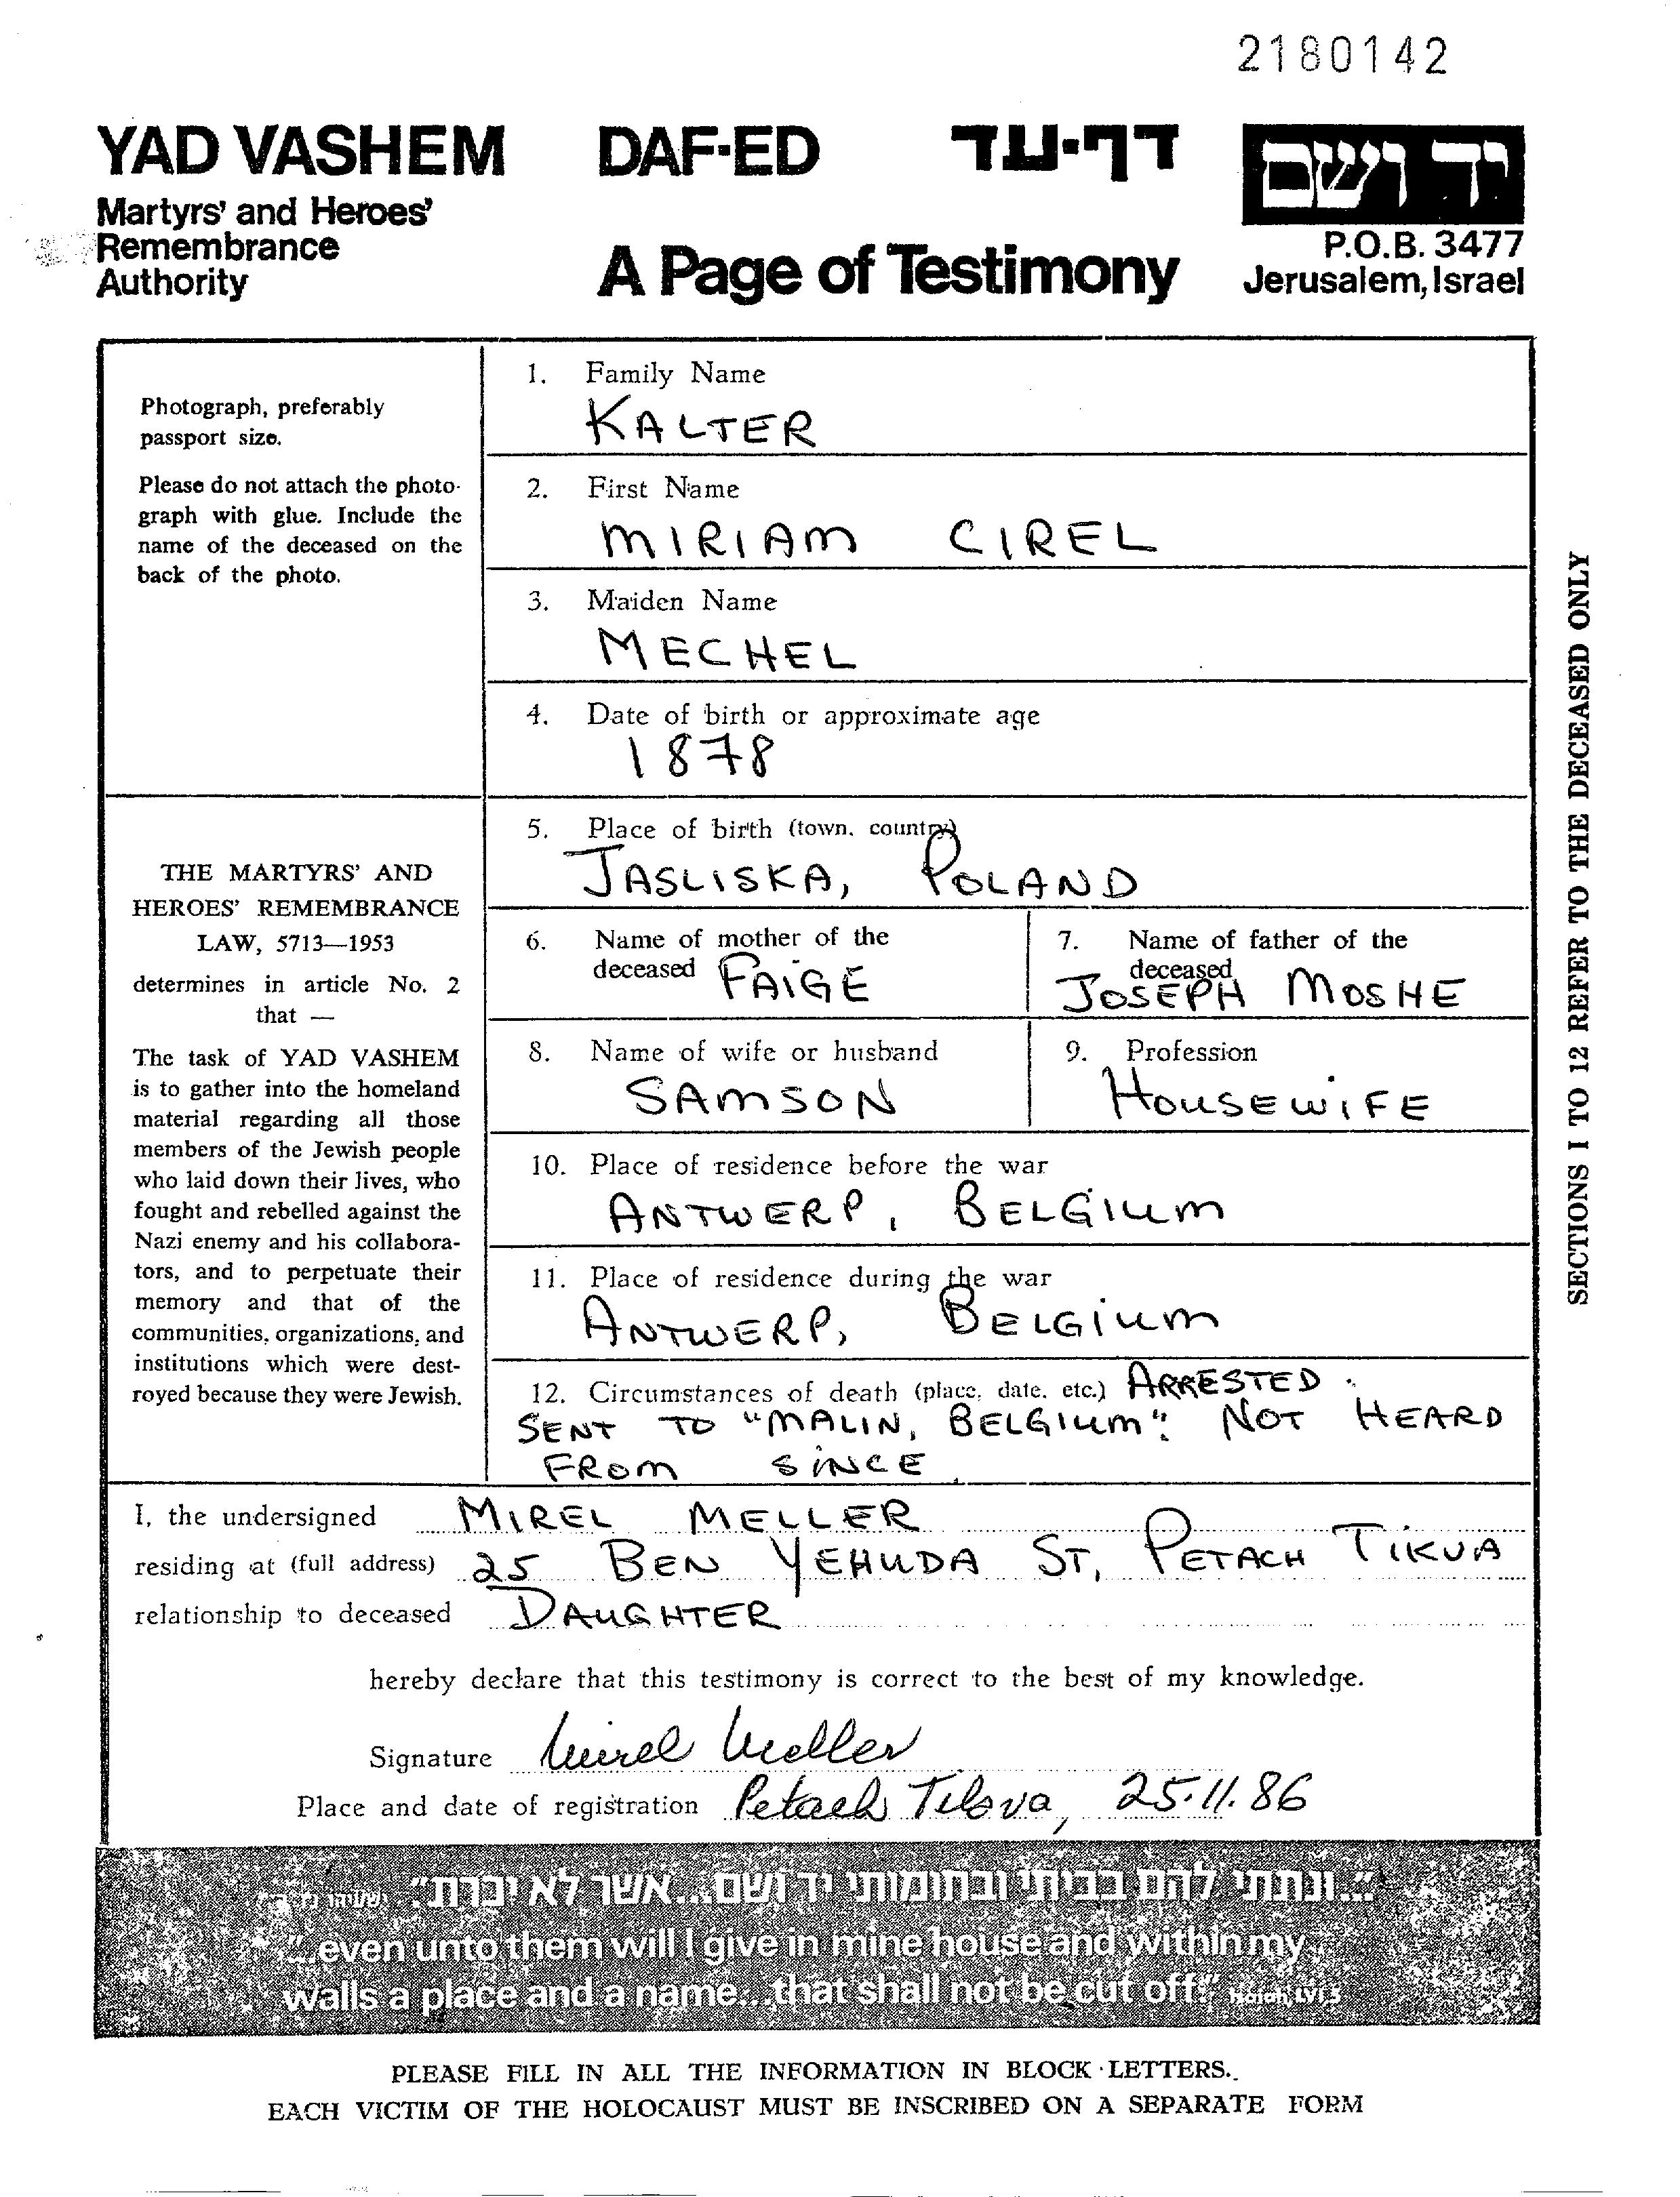 2180142
YAD VASHEM DAF-ED דף-עד יד ושם
Martyrs' and Heroes'
Remembrance
Authority
A Page of Testimony
P.O.B. 3477
Jerusalem, Israel
Photograph, preferably
passport size.
Please do not attach the photo-
graph with glue. Include the
name of the deceased on the
back of the photo.
THE MARTYRS' AND
HEROES' REMEMBRANCE
LAW, 5713—1953
determines in article No. 2
that —
The task of YAD VASHEM
is to gather into the homeland
material regarding all those
members of the Jewish people
who laid down their lives, who
fought and rebelled against the
Nazi enemy and his collabora-
tors, and to perpetuate their
memory and that of the
communities, organizations, and
institutions which were dest-
royed because they were Jewish.
1. Family Name
KALTER
2. First Name
MIRIAM CIREL
3. Maiden Name
MECHEL
4. Date of birth or approximate age
1878
5. Place of birth (town, country)
JASLISKA, POLAND
6. Name of mother of the
deceased FAIGE
7. Name of father of the
deceased
JOSEPH MOSHE
8. Name of wife or husband
SAMSON
9. Profession
HOUSEWIFE
10. Place of residence before the war
ANTWERP, BELGIUM
11. Place of residence during the war
ANTWERP, BELGIUM
12. Circumstances of death (place, date, etc.) ARRESTED.
SENT TO "MALIN, BELGIUM". NOT HEARD
FROM SINCE.
SECTIONS 1 TO 12 REFER TO THE DECEASED ONLY
I, the undersigned MIREL MELLER
residing at (full address) 25 BEN YEHUDA ST, PETACH TIKVA
relationship to deceased DAUGHTER
hereby declare that this testimony is correct to the best of my knowledge.
Signature Mirel Meller
Place and date of registration Petach Tikva, 25.11.86
"...ונתתי להם בביתי ובחומותי יד ושם...אשר לא יכרת"
"...even unto them will I give in mine house and within my
walls a place and a name...that shall not be cut off" Isaiah, LVI 5
PLEASE FILL IN ALL THE INFORMATION IN BLOCK LETTERS.
EACH VICTIM OF THE HOLOCAUST MUST BE INSCRIBED ON A SEPARATE FORM